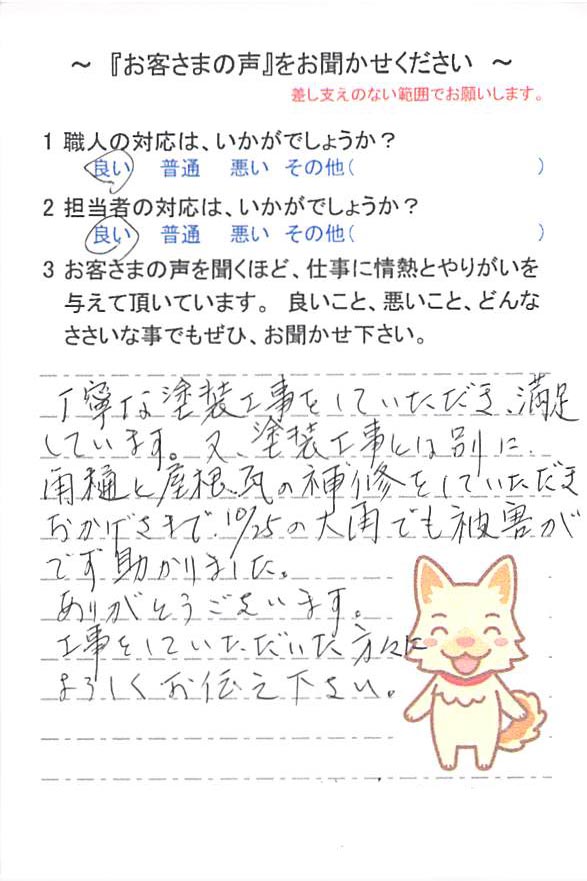 ～『お客さまの声』をお聞かせください ～
差し支えのない範囲でお願いします。
1 職人の対応は、いかがでしょうか？
良い 普通 悪い その他( )
2 担当者の対応は、いかがでしょうか？
良い 普通 悪い その他( )
3 お客さまの声を聞くほど、仕事に情熱とやりがいを
与えて頂いています。 良いこと、悪いこと、どんな
ささいな事でもぜひ、お聞かせ下さい。
丁寧な塗装工事をしていただき、満足
しています。又、塗装工事とは別に、
雨樋と屋根瓦の補修をしていただき
おかげさまで、10/25の大雨でも被害が
でず助かりました。
ありがとうございます。
工事をしていただいた方々に
よろしくお伝え下さい。